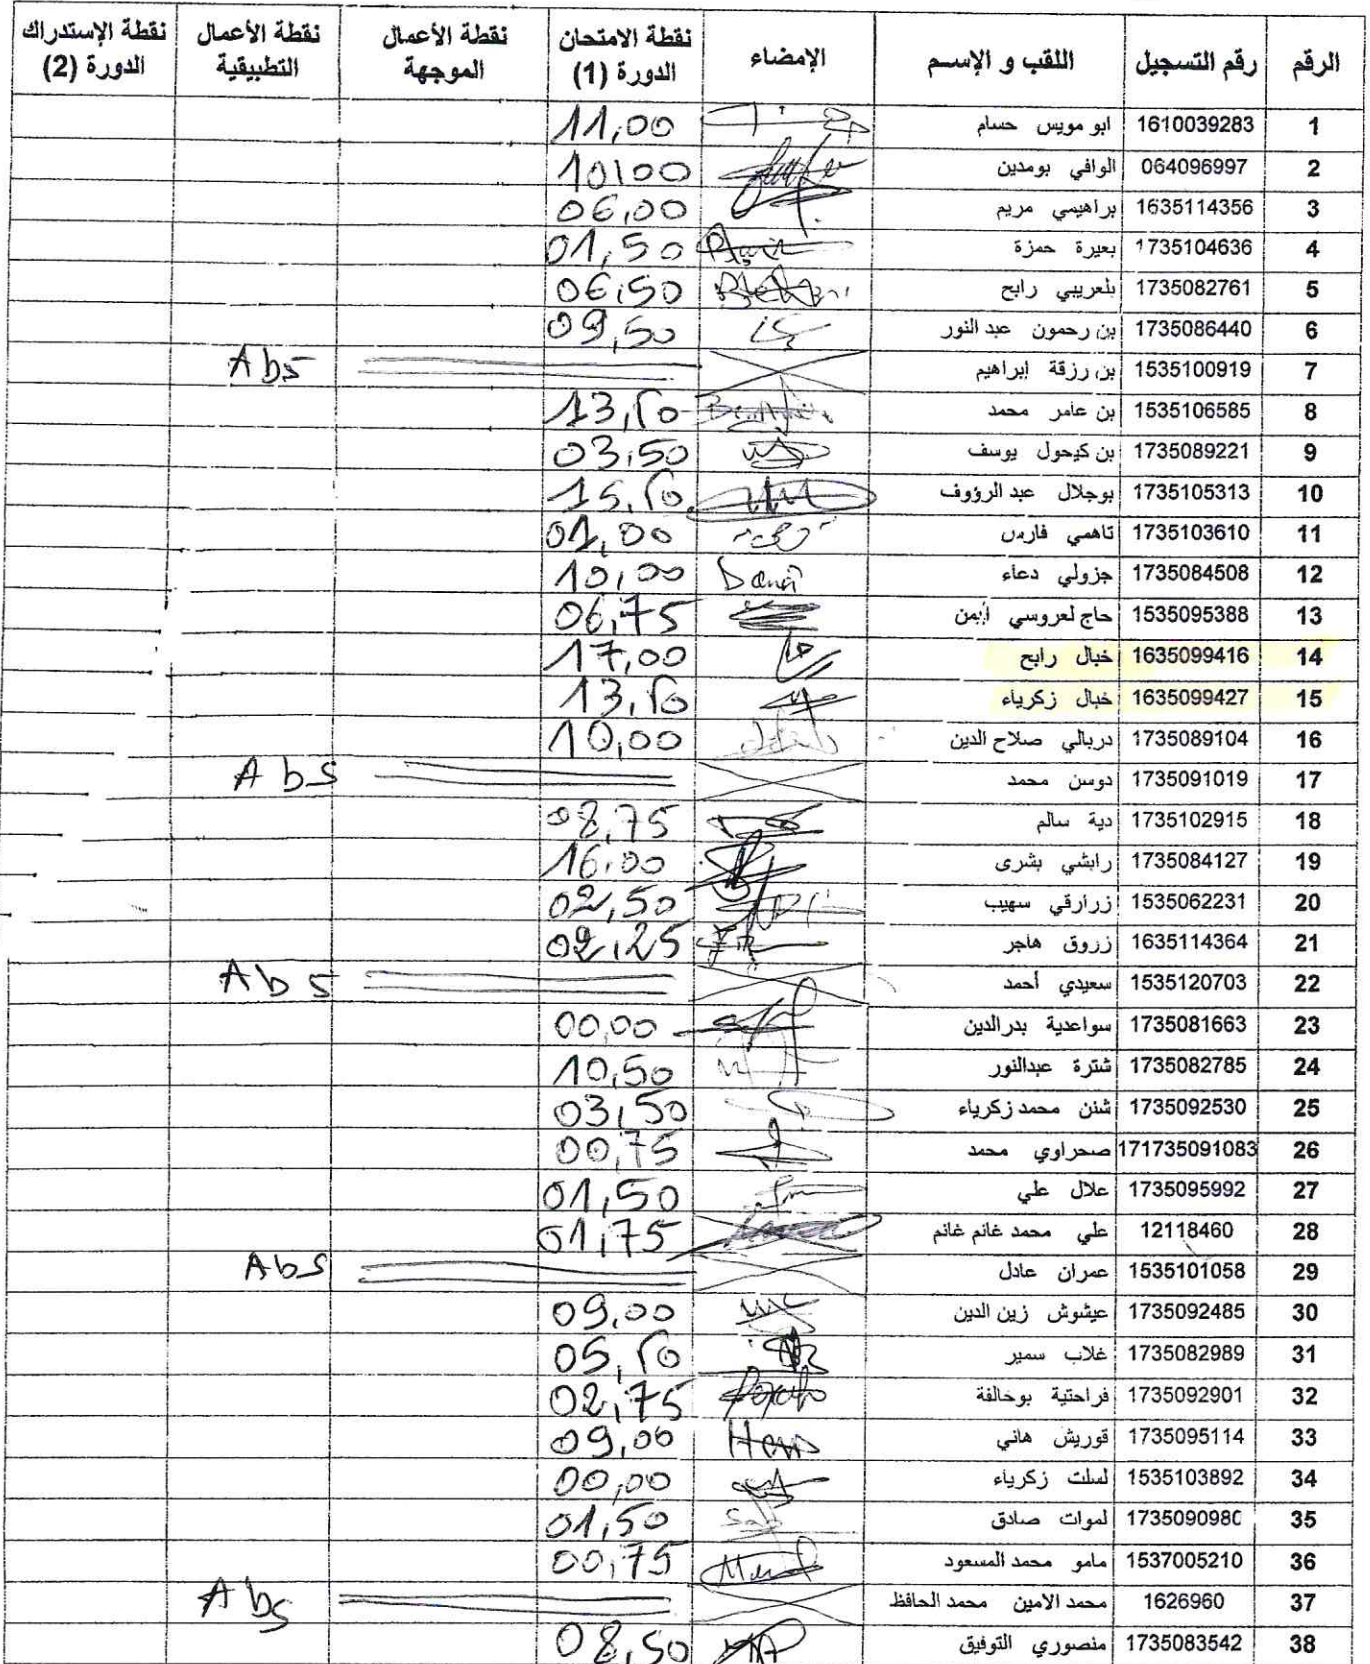 الرقم رقم التسجيل اللقب و الإسم الإمضاء نقطة الامتحان الدورة (1) نقطة الأعمال الموجهة نقطة الأعمال التطبيقية نقطة الإستدراك الدورة (2)
1 1610039283 ابو مويس حسام 11,00
2 064096997 الوافي بومدين 10,00
3 1635114356 براهيمي مريم 06,00
4 1735104636 بعيرة حمزة 01,50
5 1735082761 بلعريبي رابح 06,50
6 1735086440 بن رحمون عبد النور 09,50
7 1535100919 بن رزقة إبراهيم Abs
8 1535106585 بن عامر محمد 13,50
9 1735089221 بن كيحول يوسف 03,50
10 1735105313 بوجلال عبد الرؤوف 15,50
11 1735103610 تاهمي فارس 01,00
12 1735084508 جزولي دعاء 10,00
13 1535095388 حاج لعروسي أيمن 06,75
14 1635099416 خبال رابح 17,00
15 1635099427 خبال زكرياء 13,50
16 1735089104 دربالي صلاح الدين 10,00
17 1735091019 دوسن محمد Abs
18 1735102915 دية سالم 08,75
19 1735084127 رابشي بشرى 16,00
20 1535062231 زرارقي سهيب 02,50
21 1635114364 زروق هاجر 09,25
22 1535120703 سعيدي أحمد Abs
23 1735081663 سواعدية بدرالدين 00,00
24 1735082785 شترة عبدالنور 10,50
25 1735092530 شنن محمد زكرياء 03,50
26 171735091083 صحراوي محمد 00,75
27 1735095992 علال علي 01,50
28 12118460 علي محمد غانم غانم 01,75
29 1535101058 عمران عادل Abs
30 1735092485 عيشوش زين الدين 09,00
31 1735082989 غلاب سمير 05,50
32 1735092901 فراحتية بوخالفة 02,75
33 1735095114 قوريش هاني 09,00
34 1535103892 لسلت زكرياء 00,00
35 1735090980 لموات صادق 01,50
36 1537005210 مامو محمد المسعود 00,75
37 1626960 محمد الامين محمد الحافظ Abs
38 1735083542 منصوري التوفيق 08,50